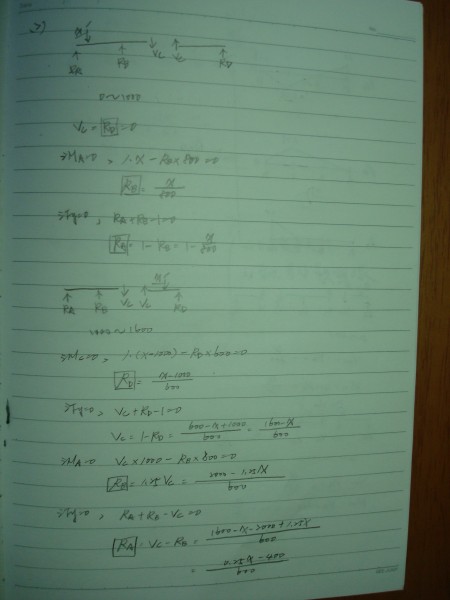 2)
x
RA RB Vc Vc RD
0~1000
Vc = RD = 0
ΣMA=0, 1·x - RB×800 = 0
RB = x/800
ΣFy=0, RA+RB-1=0
RB = 1-RB = 1- x/800
x
RA RB Vc Vc RD
1000~1600
ΣMC=0, 1·(x-1000) - RD×600=0
RD = x-1000/600
ΣFy=0, Vc+RD-1=0
Vc = 1-RD = 600-x+1000/600 = 1600-x/600
ΣMA=0 Vc×1000 - RB×800=0
RB = 1.25Vc = 2000-1.25x/600
ΣFy=0, RA+RB-Vc=0
RA = Vc-RB = 1600-x-2000+1.25x/600
= 0.25x-400/600